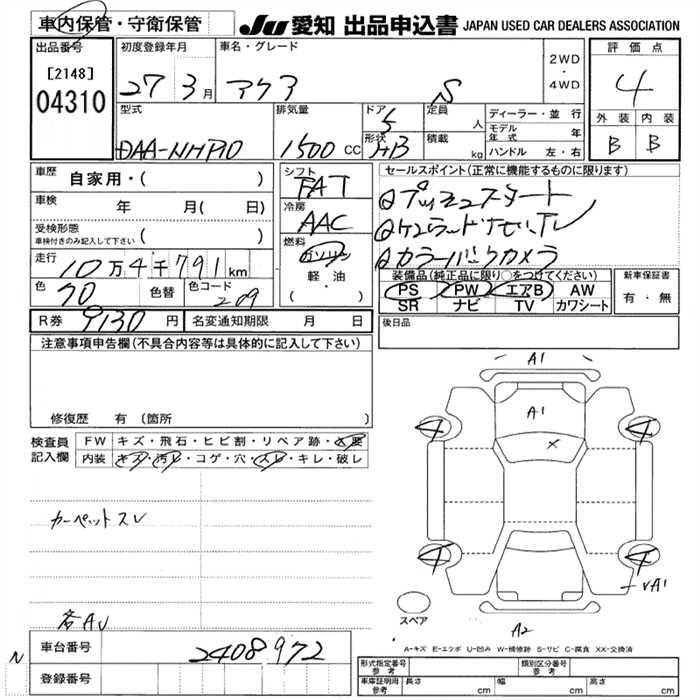 車内保管・守衛保管
JU 愛知 出品申込書 JAPAN USED CAR DEALERS ASSOCIATION
出品番号
[2148]
04310
初度登録年月
27 3月
車名・グレード
アクア S
2WD
・
4WD
評価点
4
外装 内装
B B
型式
DAA-NHP10
排気量
1500 cc
ドア
5
形状
HB
定員
人
積載
kg
ディーラー・並 行
モデル年式 年
ハンドル 左・右
車歴
自家用・( )
車検
年 月( 日)
受検形態
車検付きのみ記入して下さい ( )
走行
10万4千791km
色
70
色替
色コード
209
シフト
FAT
冷房
AAC
燃料
ガソリン
・
軽・油
( )
セールスポイント(正常に機能するものに限ります)
プッシュスタート
カラーバックカメラ
装備品(純正品に限り○をつけてください)
PS PW エアB AW
SR ナビ TV カワシート
新車保証書
有・無
R券 9130 円
名変通知期限 月 日
後日品
注意事項申告欄(不具合内容等は具体的に記入して下さい)
修復歴 有 (箇所 )
検査員
記入欄
FW キズ・飛石・ヒビ割・リペア跡・×要
内装 キズ・汚レ・コゲ・穴・スレ・キレ・破レ
カーペットスレ
各AU
N
車台番号
2408972
登録番号
A1
A1
×
4
4
4
4
A1
スペア
A2
A-キズ E-エクボ U-凹み W-補修跡 S-サビ C-腐食 XX-交換済
形式指定番号
参考
類別区分番号
参考
車庫証明用
参考
長さ cm 幅 cm 高さ cm